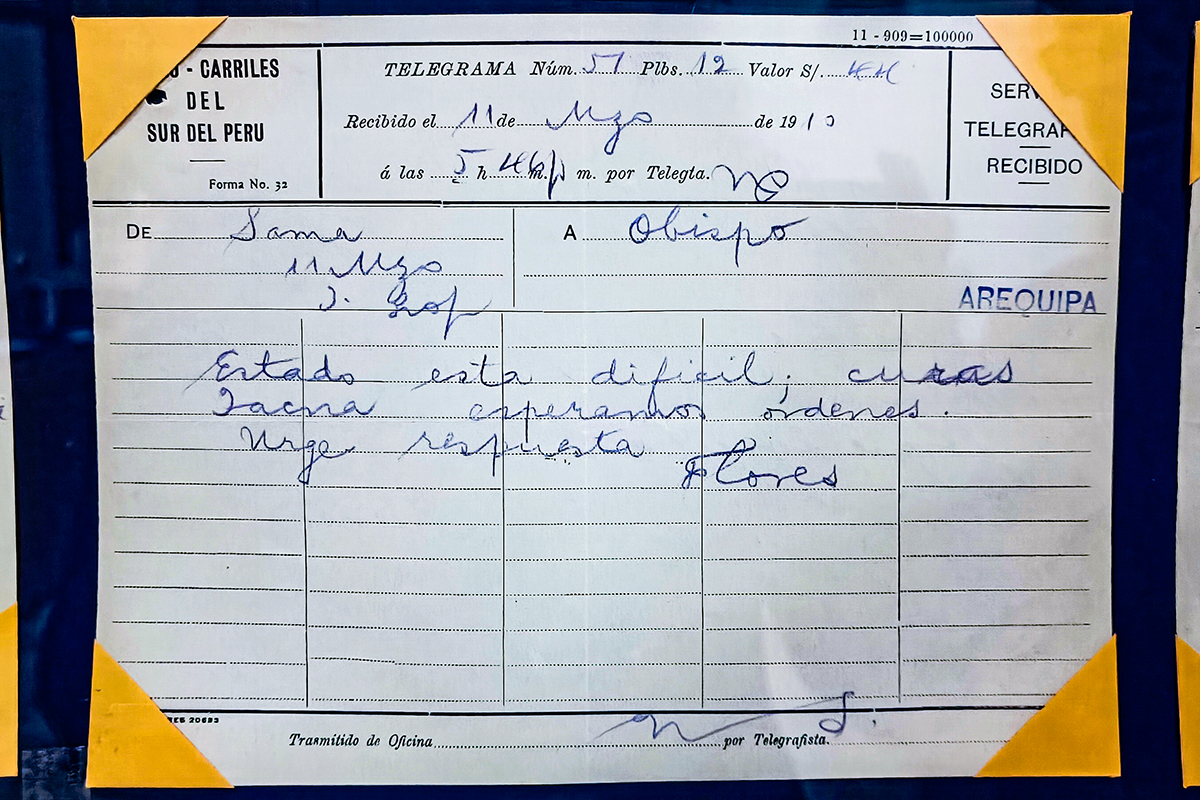 11 - 909=100000
- CARRILES
DEL
SUR DEL PERU
Forma No. 32
TELEGRAMA Núm. 51 Plbs. 12 Valor S/.
Recibido el 11 de Mzo de 19 10
á las 5 h 46 m. p m. por Telegta.
SERV
TELEGRAF
RECIBIDO
DE Sama
11 Mzo
A Obispo
AREQUIPA
Estado esta dificil; curas
Tacna esperamos órdenes.
Urge respuesta
Flores
20693
Trasmitido de Oficina por Telegrafista.